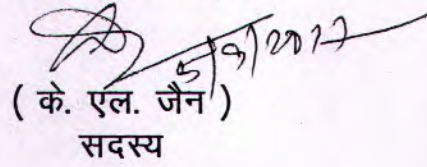 5/9/2017
( के. एल. जैन )
सदस्य